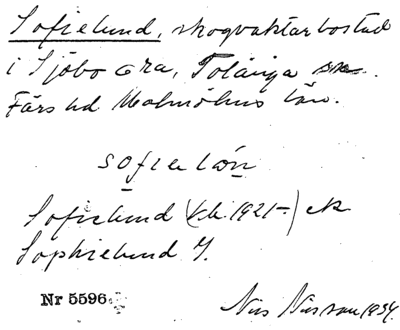 Sofielund, skogvaktarbostad
i Sjöbo Ora, Tolånga sn.
Färs hd Malmöhus län.
sofielön
Sofielund (kb. 1921-) ek
Sophielund J.
Nr 5596
Nils Nilsson 1934.